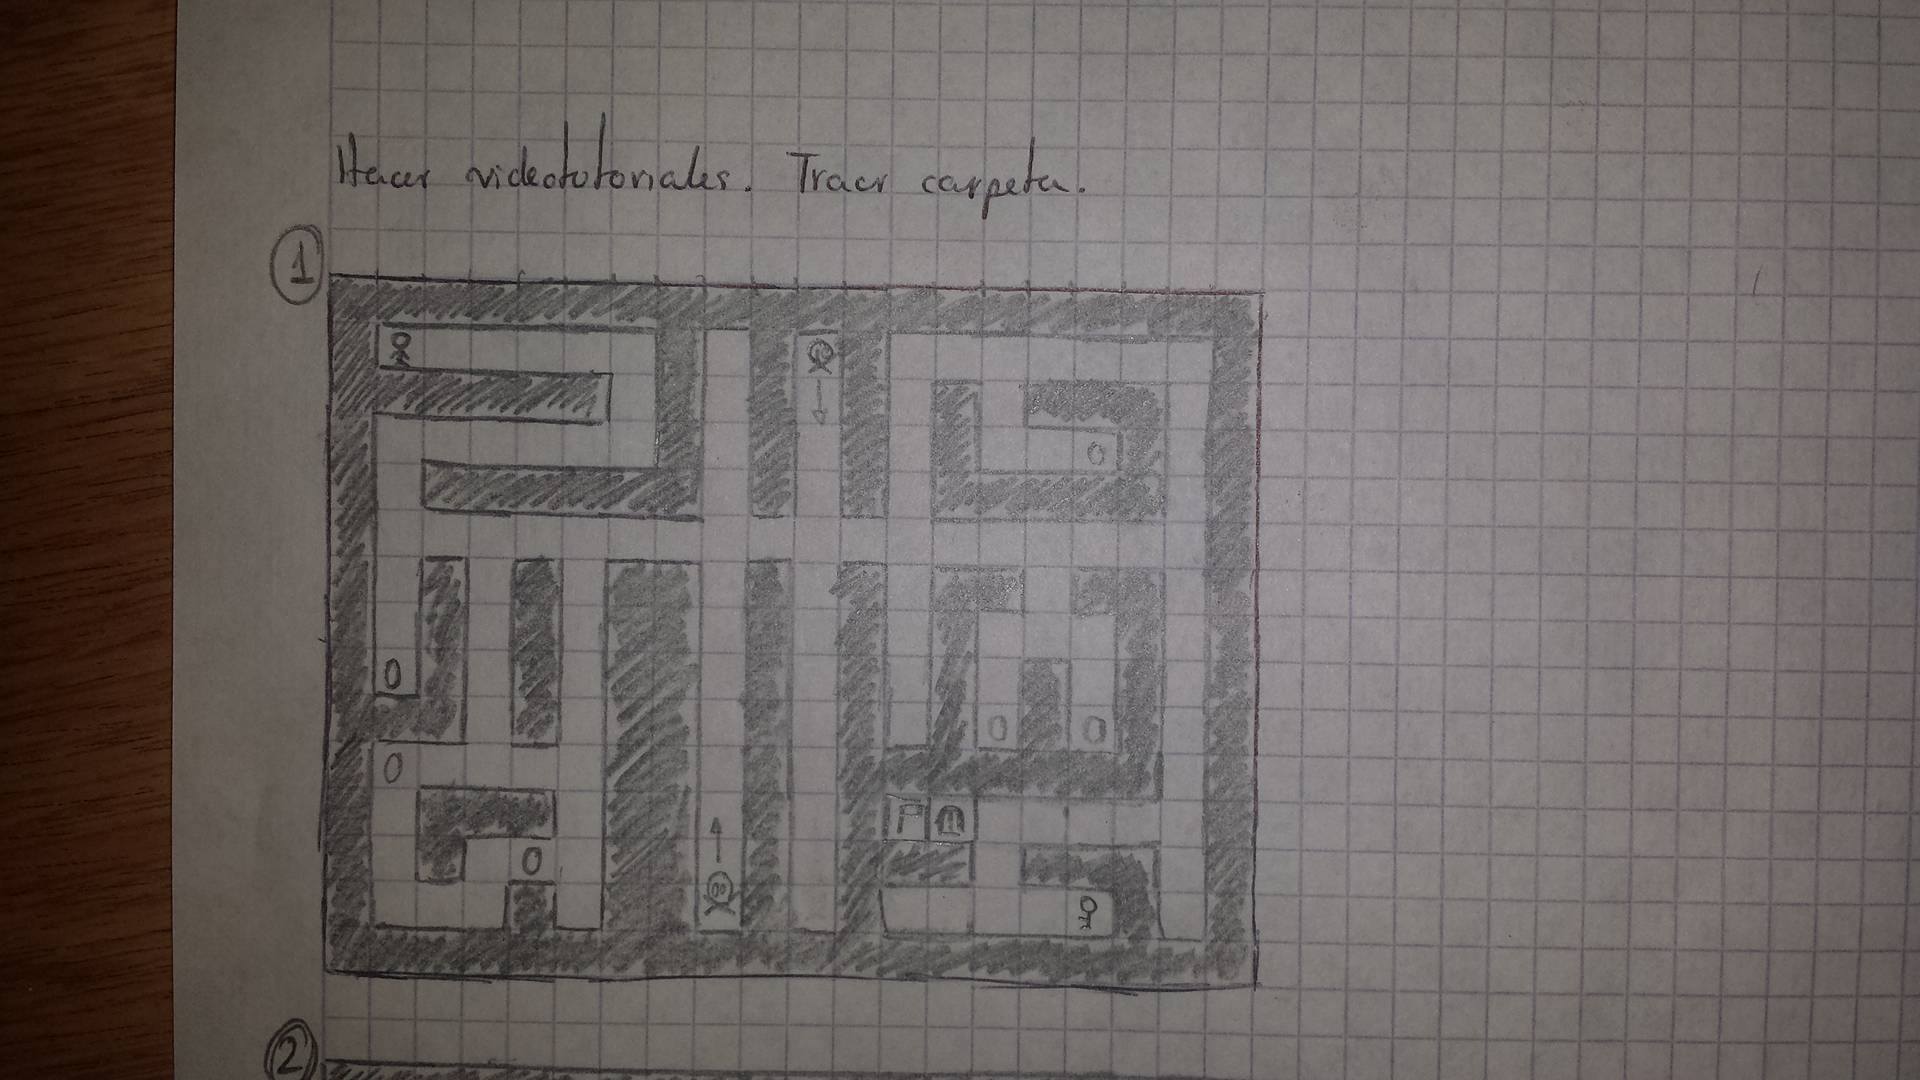 Hacer videotutoriales. Traer carpeta.
1
0
0
0
0 0
P m
0
2